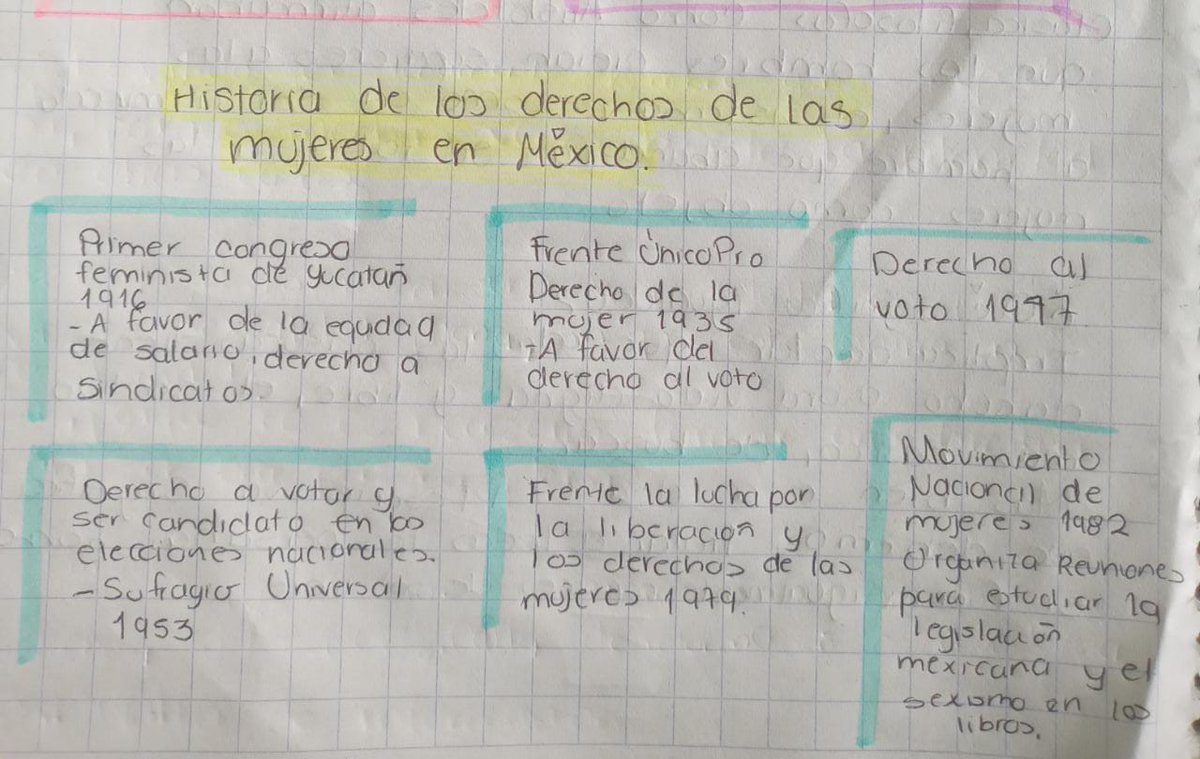 Historia de los derechos de las
mujeres en México.
Primer congreso
feminista de yucatan
1916
- A favor de la equdad
de salario, derecho a
sindicatos.
Frente ÚnicoPro
Derecho de la
mujer 1935
-A favor del
derecho al voto
Derecho al
voto 1947
Derecho a votar y
ser candidato en los
elecciones nacionales.
- Sufragio Universal
1953
Frente la lucha por
la liberación y
los derechos de las
mujeres 1979.
Movimiento
Nacional de
mujeres 1982
Organiza Reuniones
para estudiar la
legislación
mexicana y el
sexismo en los
libros.